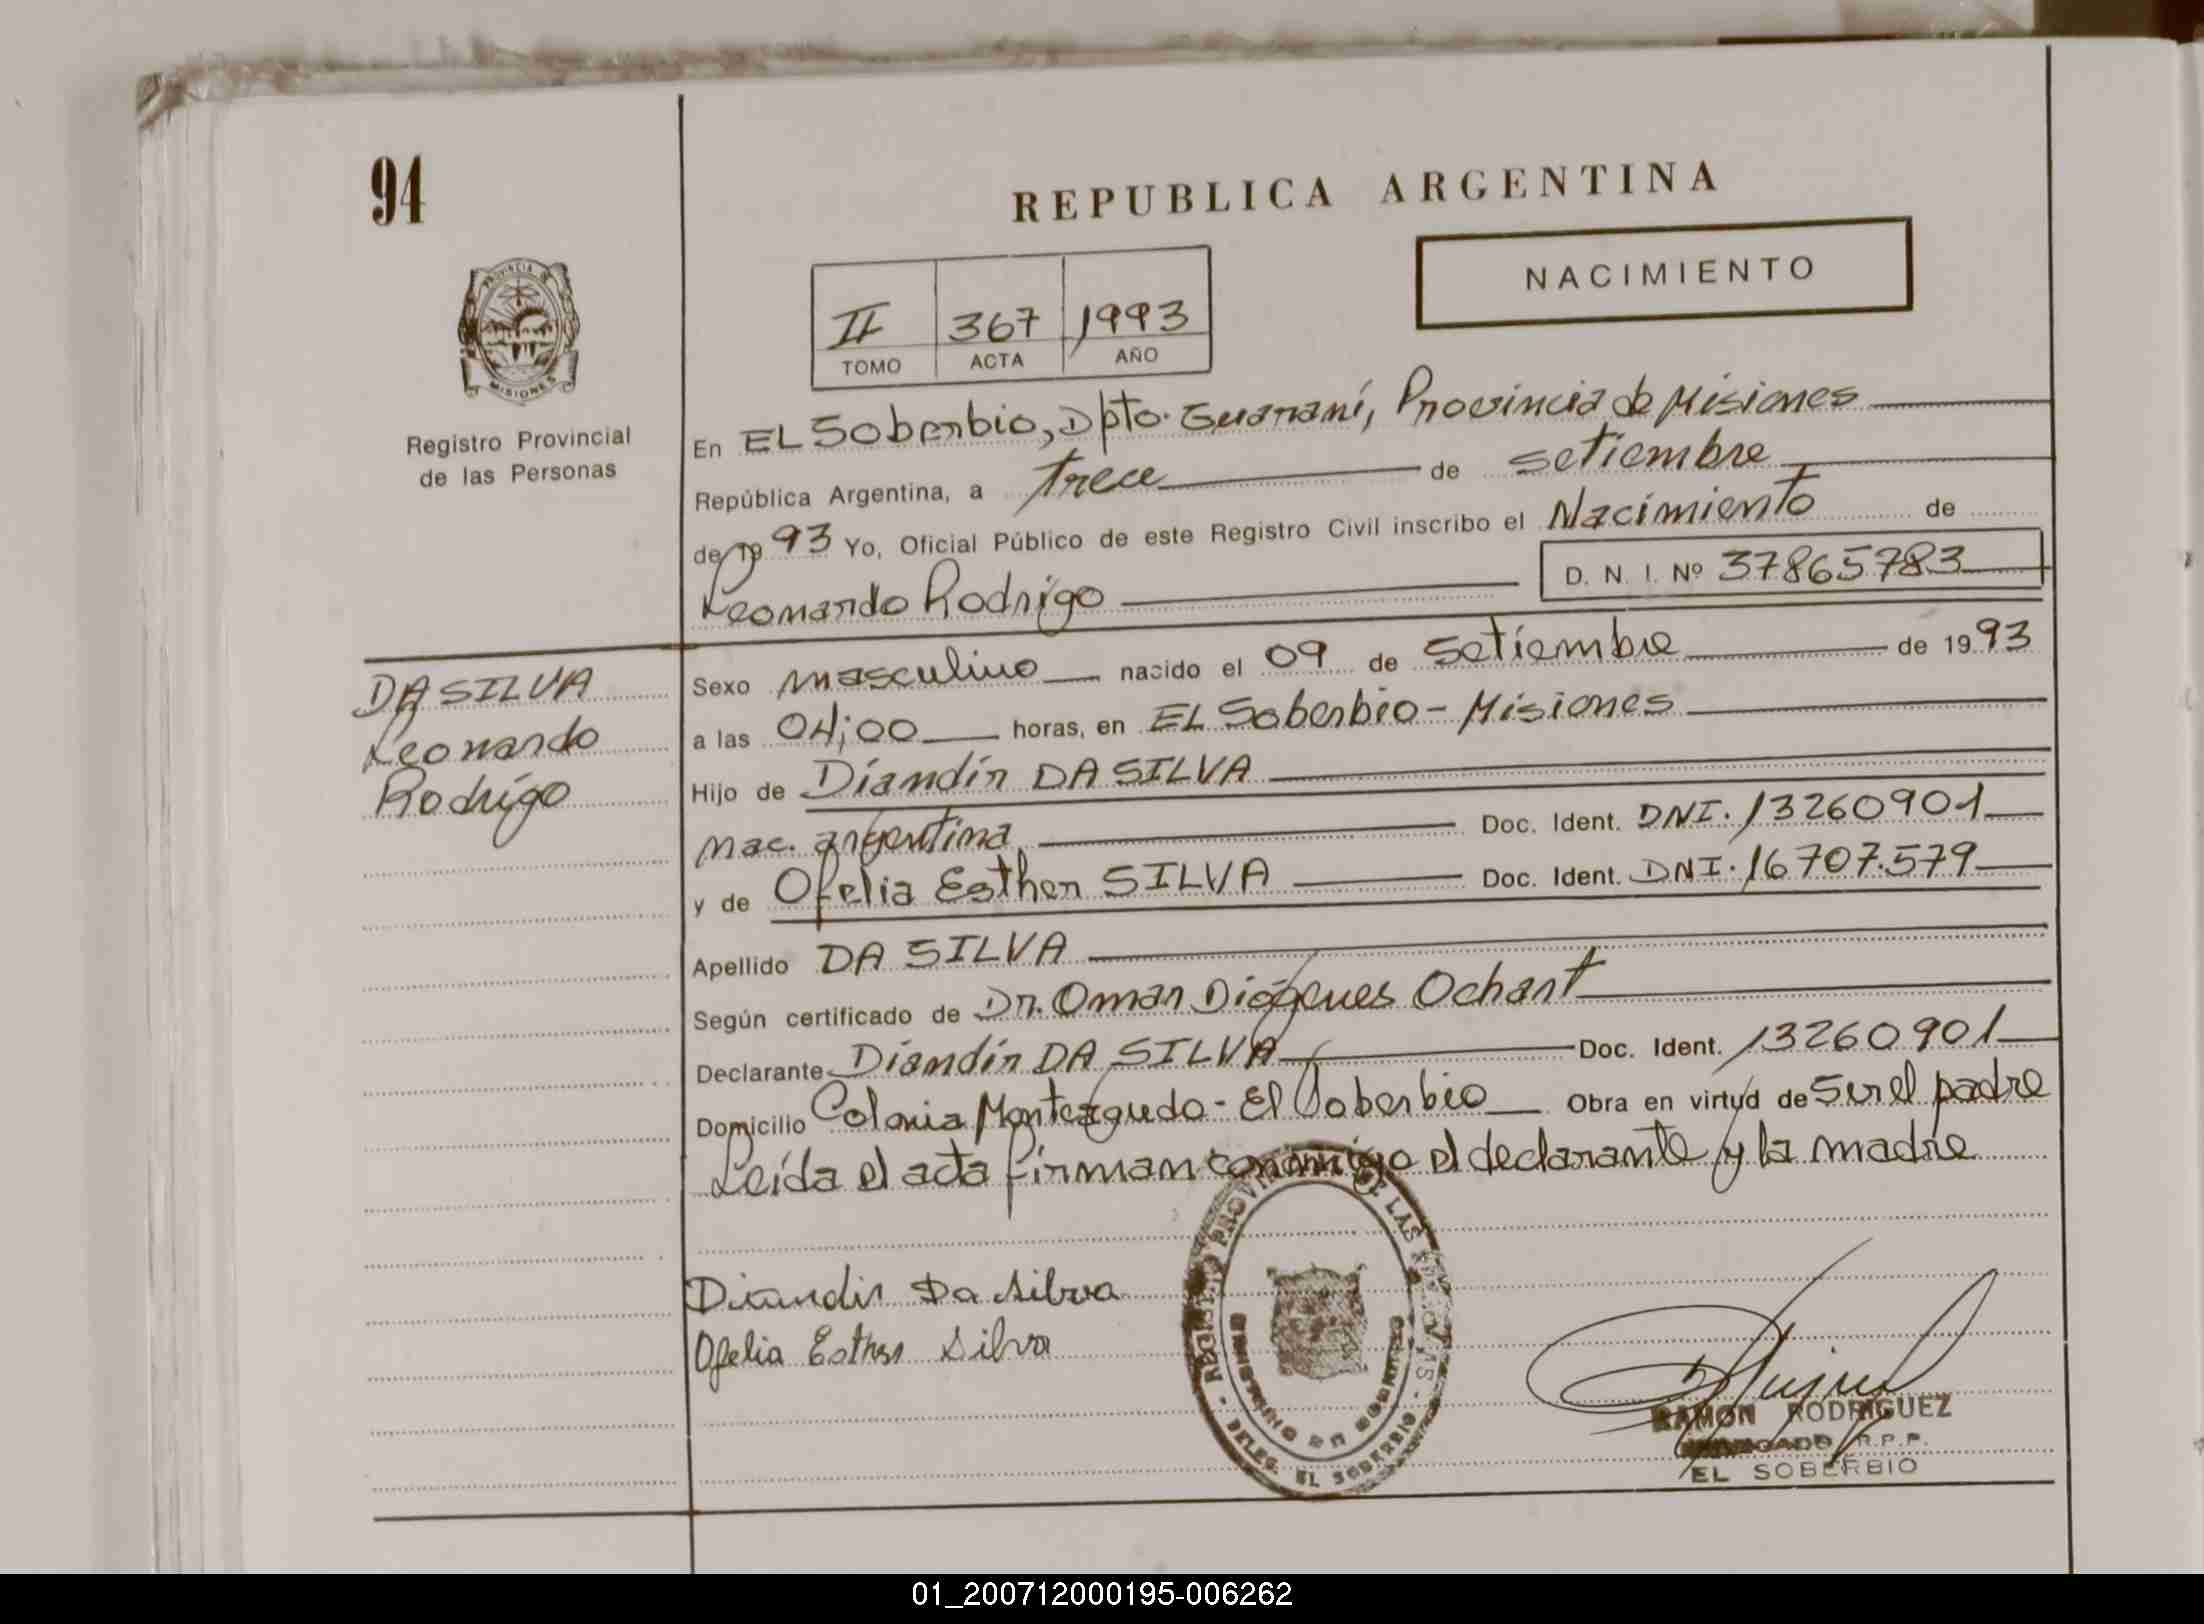 94
REPUBLICA ARGENTINA
NACIMIENTO
PROVINCIA DE
MISIONES
Registro Provincial
de las Personas
II 367 1993
TOMO ACTA AÑO
En EL Soberbio, Dpto. Guaraní, Provincia de Misiones
República Argentina, a trece de setiembre
de 19 93 Yo, Oficial Público de este Registro Civil inscribo el Nacimiento de
Leonardo Rodrigo D. N. I. Nº 37865783
DA SILVA
Leonardo
Rodrigo
Sexo masculino nacido el 09 de setiembre de 19 93
a las 04;00 horas, en EL Soberbio - Misiones
Hijo de Diandir DA SILVA
nac. argentina Doc. Ident. DNI. 13260901
y de Ofelia Esther SILVA Doc. Ident. DNI. 16707.579
Apellido DA SILVA
Según certificado de Dr. Omar Diógenes Ochant
Declarante Diandir DA SILVA Doc. Ident. 13260901
Domicilio Colonia Monteagudo - El Soberbio Obra en virtud de ser el padre
Leída el acta firman conmigo el declarante y la madre
Diandir Da Silva
Ofelia Esther Silva
REGISTRO PROVINCIAL DE LAS PERSONAS
MINISTERIO DE GOBIERNO
- DELEG. EL SOBERBIO -
RAMON RODRIGUEZ
R.P.P.
EL SOBERBIO
01_200712000195-006262